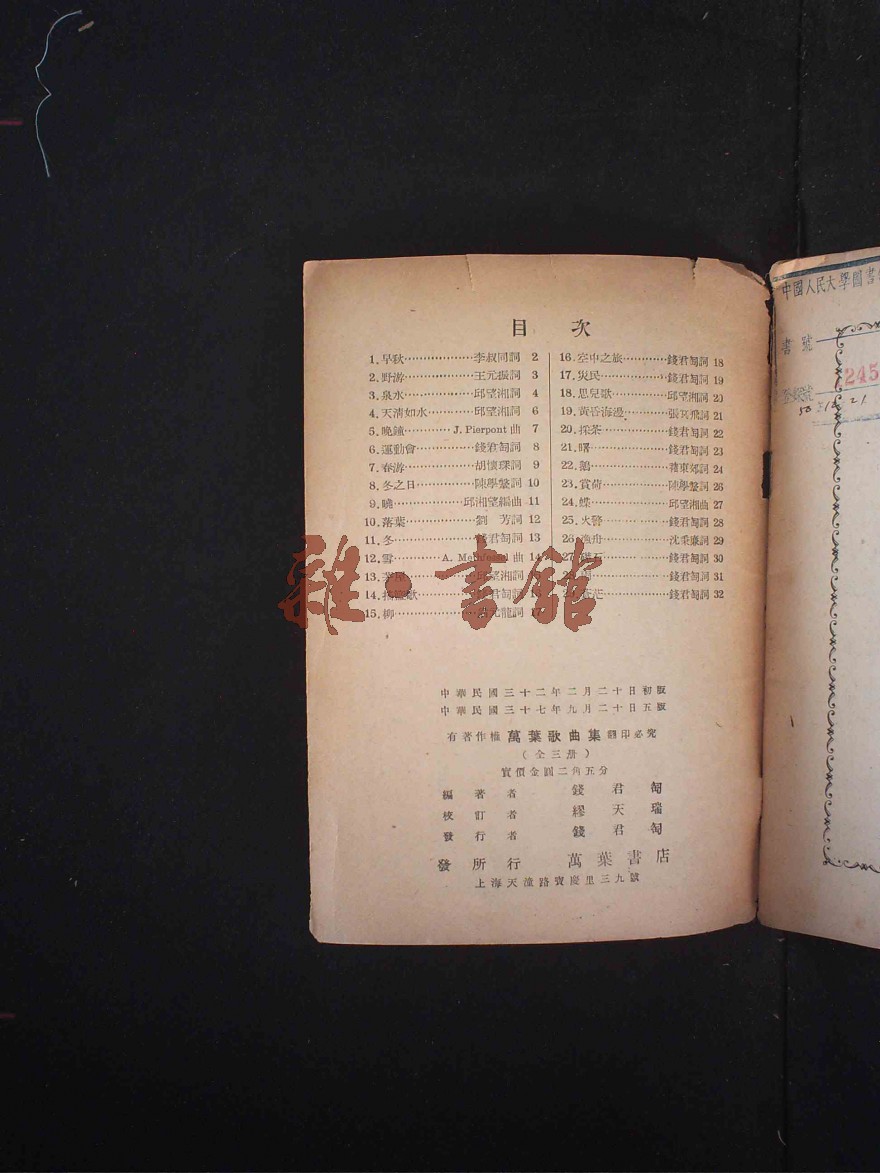 目 次
1.早秋…………………李叔同詞 2
2.野游…………………王元振詞 3
3.泉水…………………邱望湘詞 4
4.天清如水……………邱望湘詞 6
5.晚鐘…………………J. Pierpont 曲 7
6.運動會………………錢君匋詞 8
7.春游…………………胡懷琛詞 9
8.冬之日………………陳學鰲詞 10
9.曉……………………邱湘望編曲 11
10.落葉…………………劉 芳詞 12
11.冬……………………錢君匋詞 13
12.雪……………………A. 曲 14
13.…………………邱望湘詞
14.歌…………………君匋詞
15.柳……………………元龍詞
16.空中之旅……………錢君匋詞 18
17.災民…………………錢君匋詞 19
18.思兒歌………………邱望湘詞 20
19.黃昏海邊……………詞 21
20.採茶…………………錢君匋詞 22
21.曙……………………錢君匋詞 23
22.鵝……………………東郊詞 24
23.賞荷…………………陳學鰲詞 26
24.蝶……………………邱望湘曲 27
25.火警…………………錢君匋詞 28
26.漁舟…………………沈秉廉詞 29
27.磁石…………………錢君匋詞 30
錢君匋詞 31
茫…………………錢君匋詞 32
中華民國三十二年二月二十日初版
中華民國三十七年九月二十日五版
有著作權 萬葉歌曲集 翻印必究
(全三册)
實價金圓二角五分
編著者 錢君匋
校訂者 繆天瑞
發行者 錢君匋
發所行 萬葉書店
上海天潼路寶慶里三九號
雜·書館
中國人民大學圖書
書號
登錄號 245